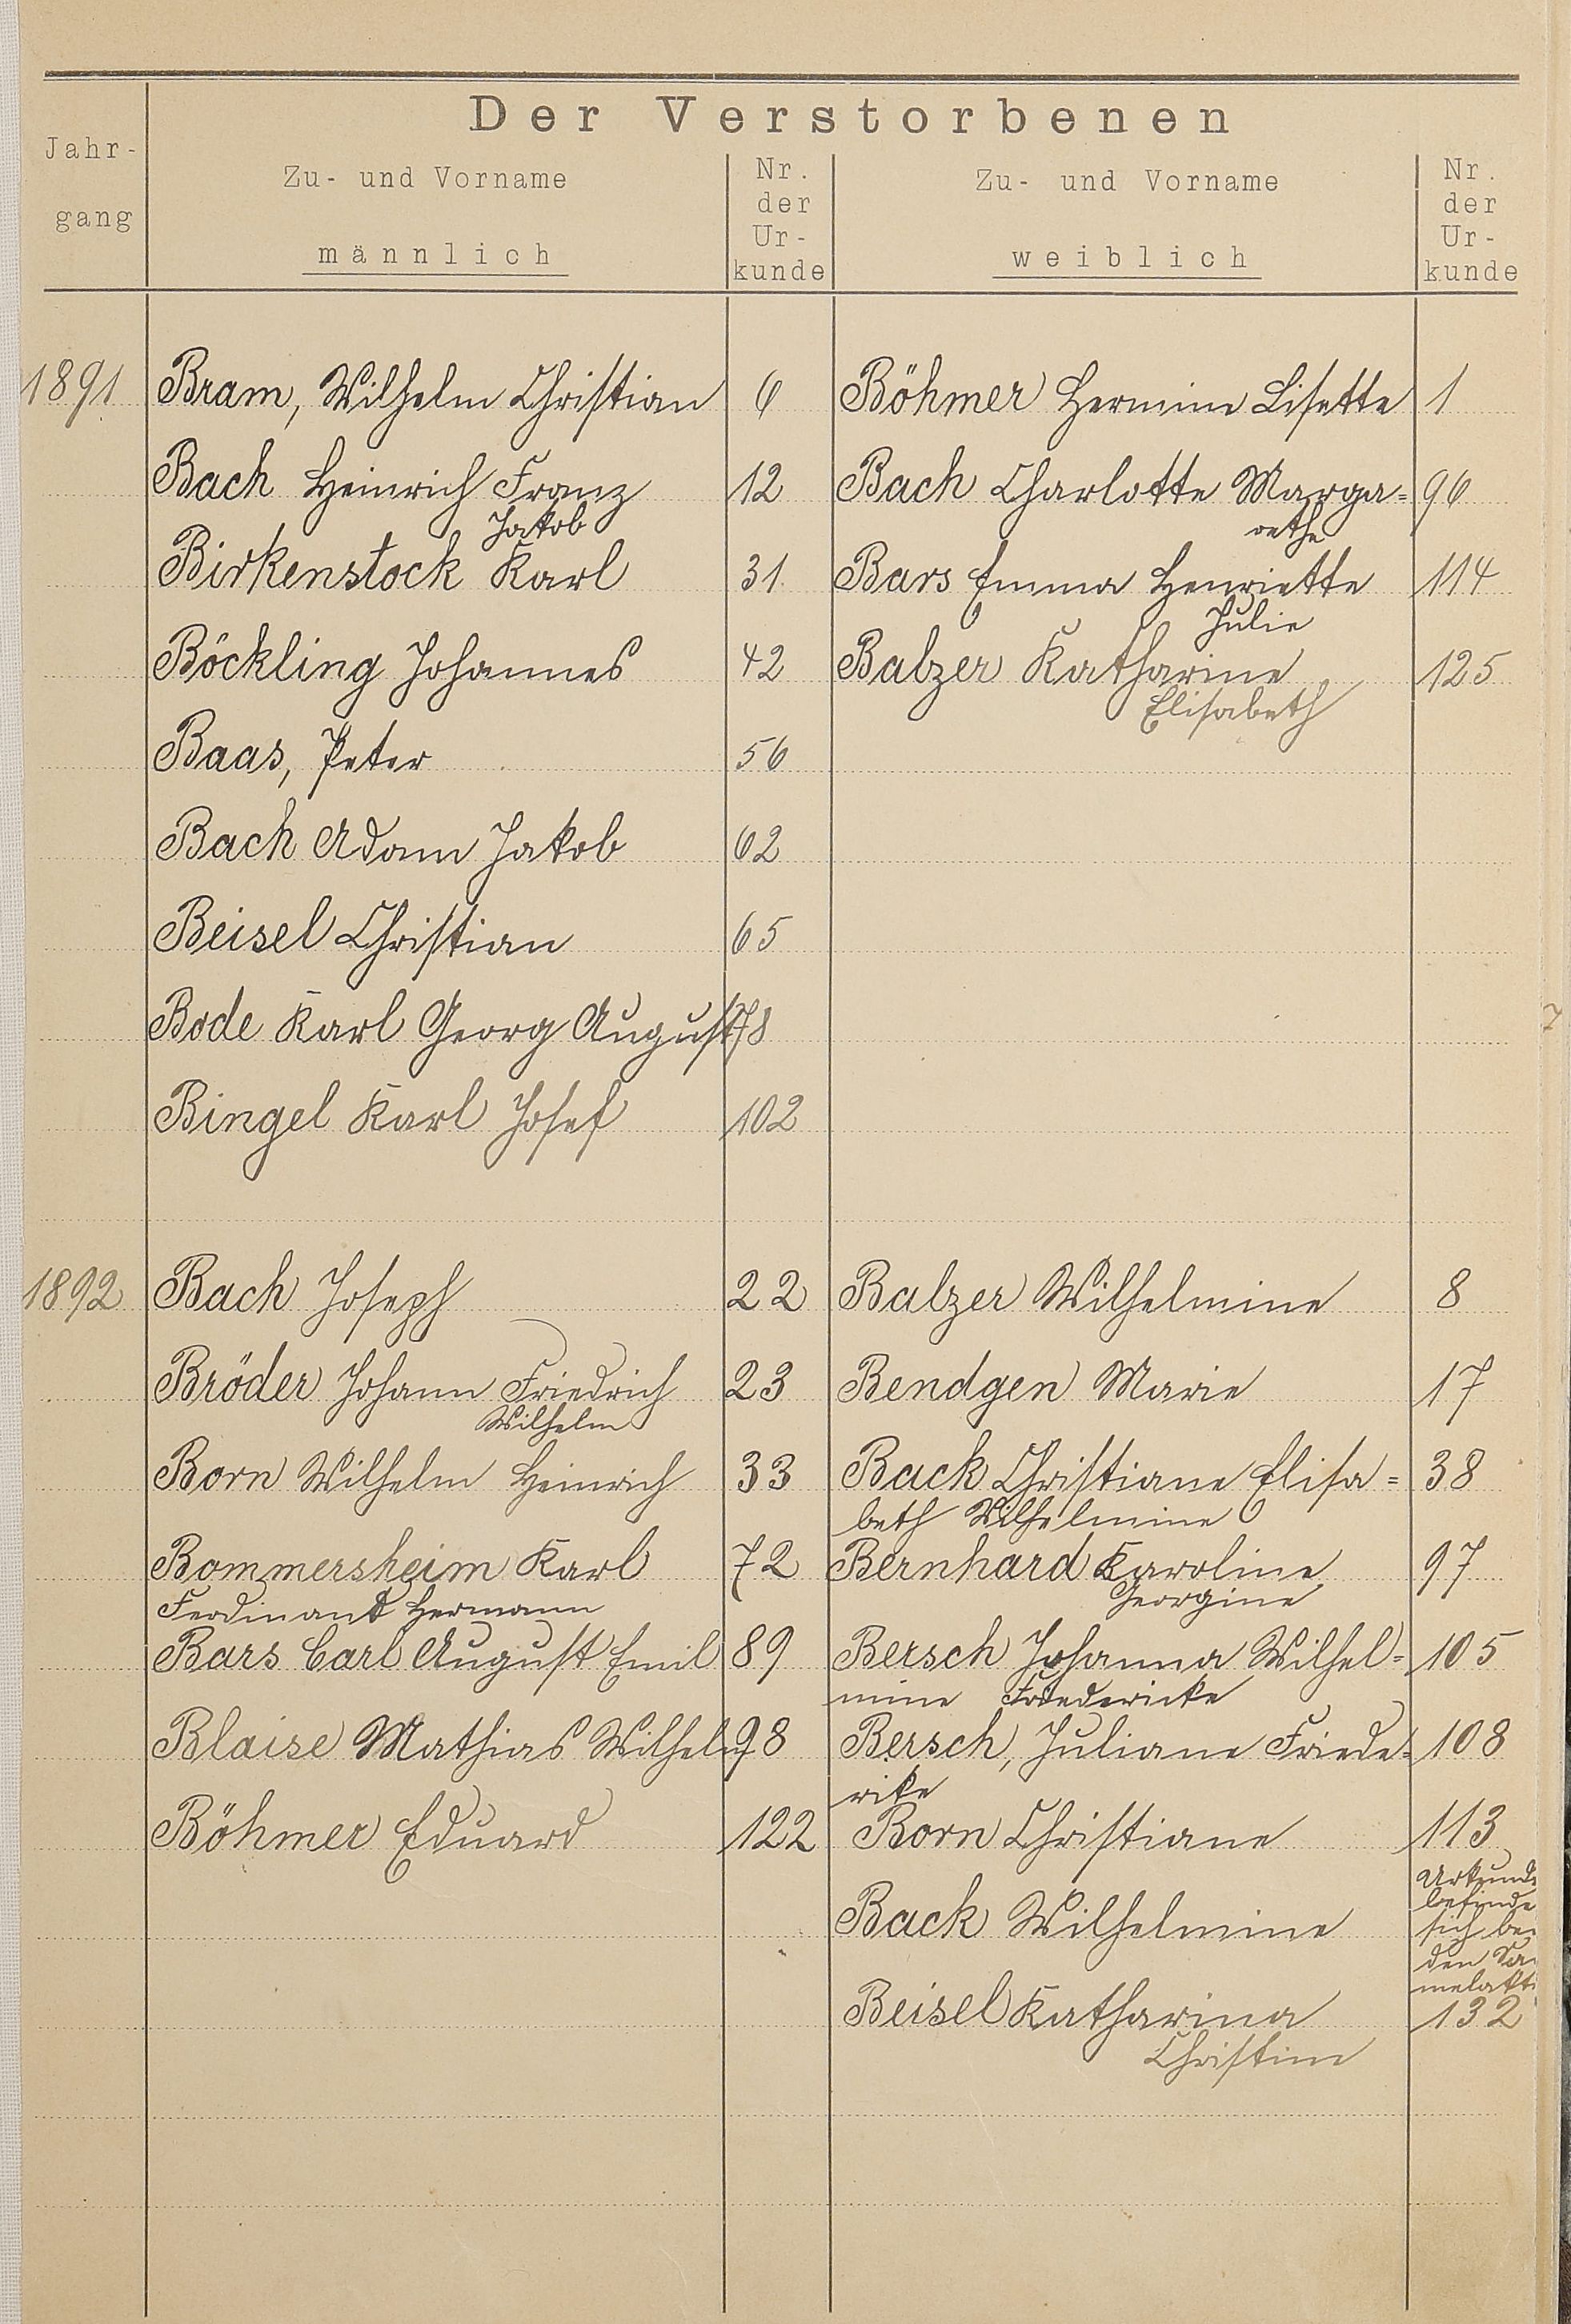 Der Verstorbenen
Jahr-
gang
Zu- und Vorname
männlich
Nr.
der
Ur-
kunde
Zu- und Vorname
weiblich
Nr.
der
Ur-
kunde
1891 Bram, Wilhelm Christian 6 Böhmer Hermine Lisette 1
Bach Heinrich Franz 12 Bach Charlotte Marga= 96
Jakob rethe
Birkenstock Karl 31 Bars Emma Henriette 114
Julie
Böckling Johannes 42 Balzer Katharine 125
Elisabeth
Baas, Peter 56
Bach Adam Jakob 62
Beisel Christian 65
Bode Karl Georg August 78
Bingel Karl Josef 102
1892 Bach Joseph 22 Balzer Wilhelmine 8
Bröder Johann Friedrich 23 Bendgen Marie 17
Wilhelm
Born Wilhelm Heinrich 33 Back Christiane Elisa= 38
beth Wilhelmine
Bommersheim Karl 72 Bernhard Karoline 97
Ferdinand Hermann Georgine
Bars Carl August Emil 89 Bersch Johanna Wilhel= 105
mine Friedericke
Blaise Mathias Wilhelm 98 Bersch, Juliane Friede= 108
rike
Böhmer Eduard 122 Born Christiane 113
Back Wilhelmine
Urkunde
befinde
sich be
den Sa
melakt
Beisel Katharina 132
Christine